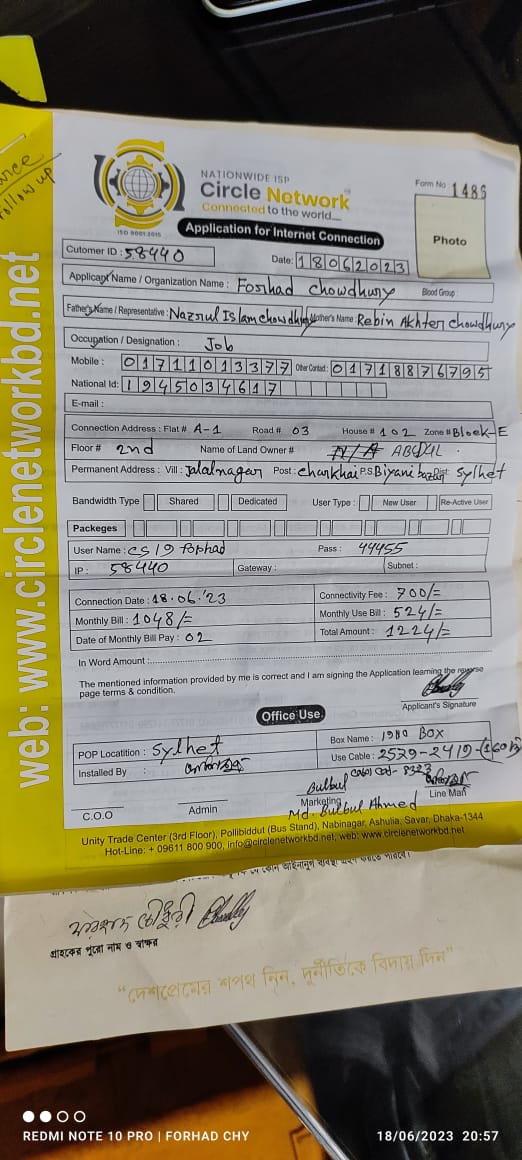 NATIONWIDE ISP
Circle Network
Connected to the world....
ISO 9001:2015
Form No 1486
Photo
Application for Internet Connection
Cutomer ID : 58440
Date: 18062023
Applicant Name / Organization Name : Forhad Chowdhury Blood Group :
Father's Name / Representative : Nazrul Islam chowdhury Mother's Name : Rebin Akhter Chowdhury
Occupation / Designation : Job
Mobile : 01711013377 Other Contact : 01718876795
National Id: 1945034617
E-mail :
Connection Address : Flat # A-1 Road # 03 House # 102 Zone # Block-E
Floor # 2nd Name of Land Owner # N/A
Permanent Address : Vill : Jalalnagar Post : charkhai P.S. Biyani bazar Dist: Sylhet
Bandwidth Type Shared Dedicated User Type : New User Re-Active User
Packeges
User Name : Pass : 44455
IP : 58440 Gateway : Subnet :
Connection Date : 18.06.'23 Connectivity Fee : 700/=
Monthly Bill : 1048/= Monthly Use Bill : 524/=
Date of Monthly Bill Pay : 02 Total Amount : 1224/=
In Word Amount :
The mentioned information provided by me is correct and I am signing the Application learning the reverse
page terms & condition.
Applicant's Signature
Office Use
POP Locatition : Sylhet Box Name : Box
Installed By : Use Cable : 2579-2419-
Bulbul
C.O.O Admin Marketing Line Man
Md. Bulbul Ahmed
Unity Trade Center (3rd Floor), Pollibiddut (Bus Stand), Nabinagar, Ashulia, Savar, Dhaka-1344
Hot-Line: + 09611 800 900, info@circlenetworkbd.net, web: www.circlenetworkbd.net
web: www.circlenetworkbd.net
Follow up
ফরহাদ চৌধুরী
গ্রাহকের পুরো নাম ও স্বাক্ষর
“দেশপ্রেমের শপথ নিন, দুর্নীতিকে বিদায় দিন”
REDMI NOTE 10 PRO | FORHAD CHY
18/06/2023 20:57